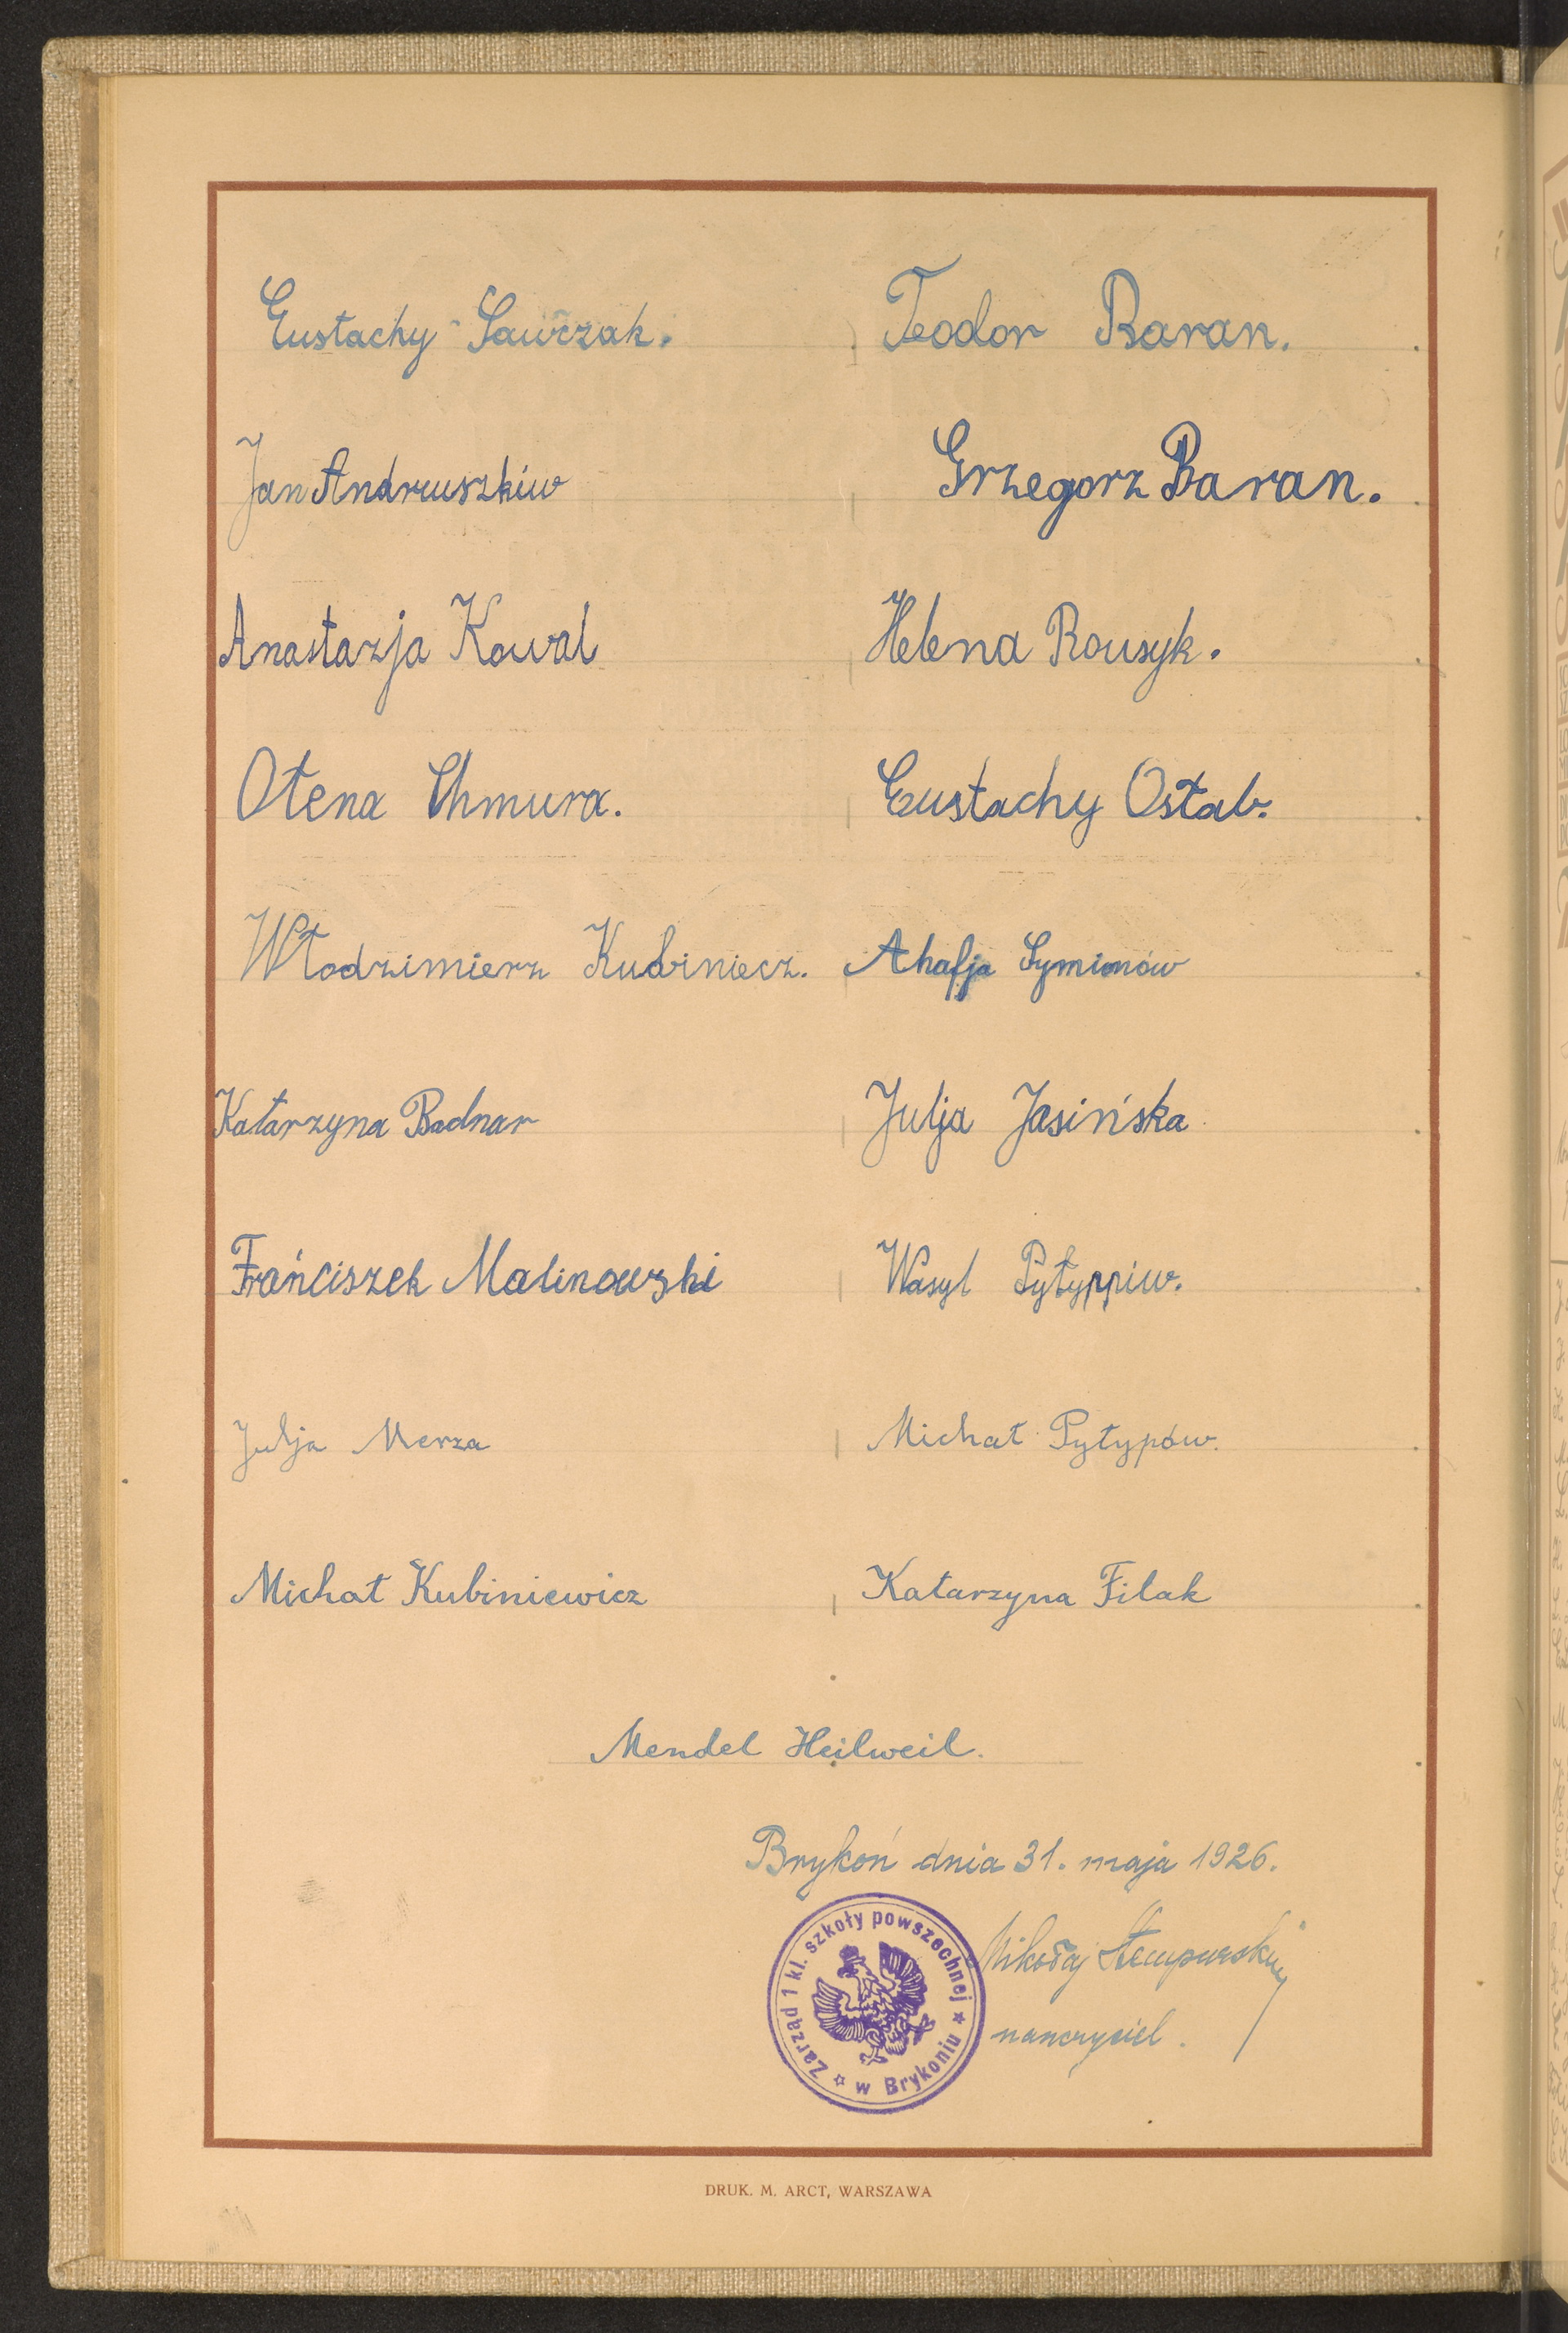 Eustachy Sawczak. Teodor Baran.
Jan Andruszkiw Grzegorz Baran.
Anastazja Kowal Helena Rousyk.
Ołena Chmura. Eustachy Ostab.
Włodzimierz Kubiniecz. Ahafja Symionów
Katarzyna Badnar Julja Jasińska
Frańciszek Malinowski Wasyl Pyłyppiw.
Julja Merza Michał Pyłypów.
Michał Kubiniewicz Katarzyna Filak
Mendel Heilweil.
Brykoń dnia 31. maja 1926.
Zarząd 1 kl. szkoły powszechnej w Brykoniu
Mikołaj
nauczyciel.
DRUK. M. ARCT, WARSZAWA